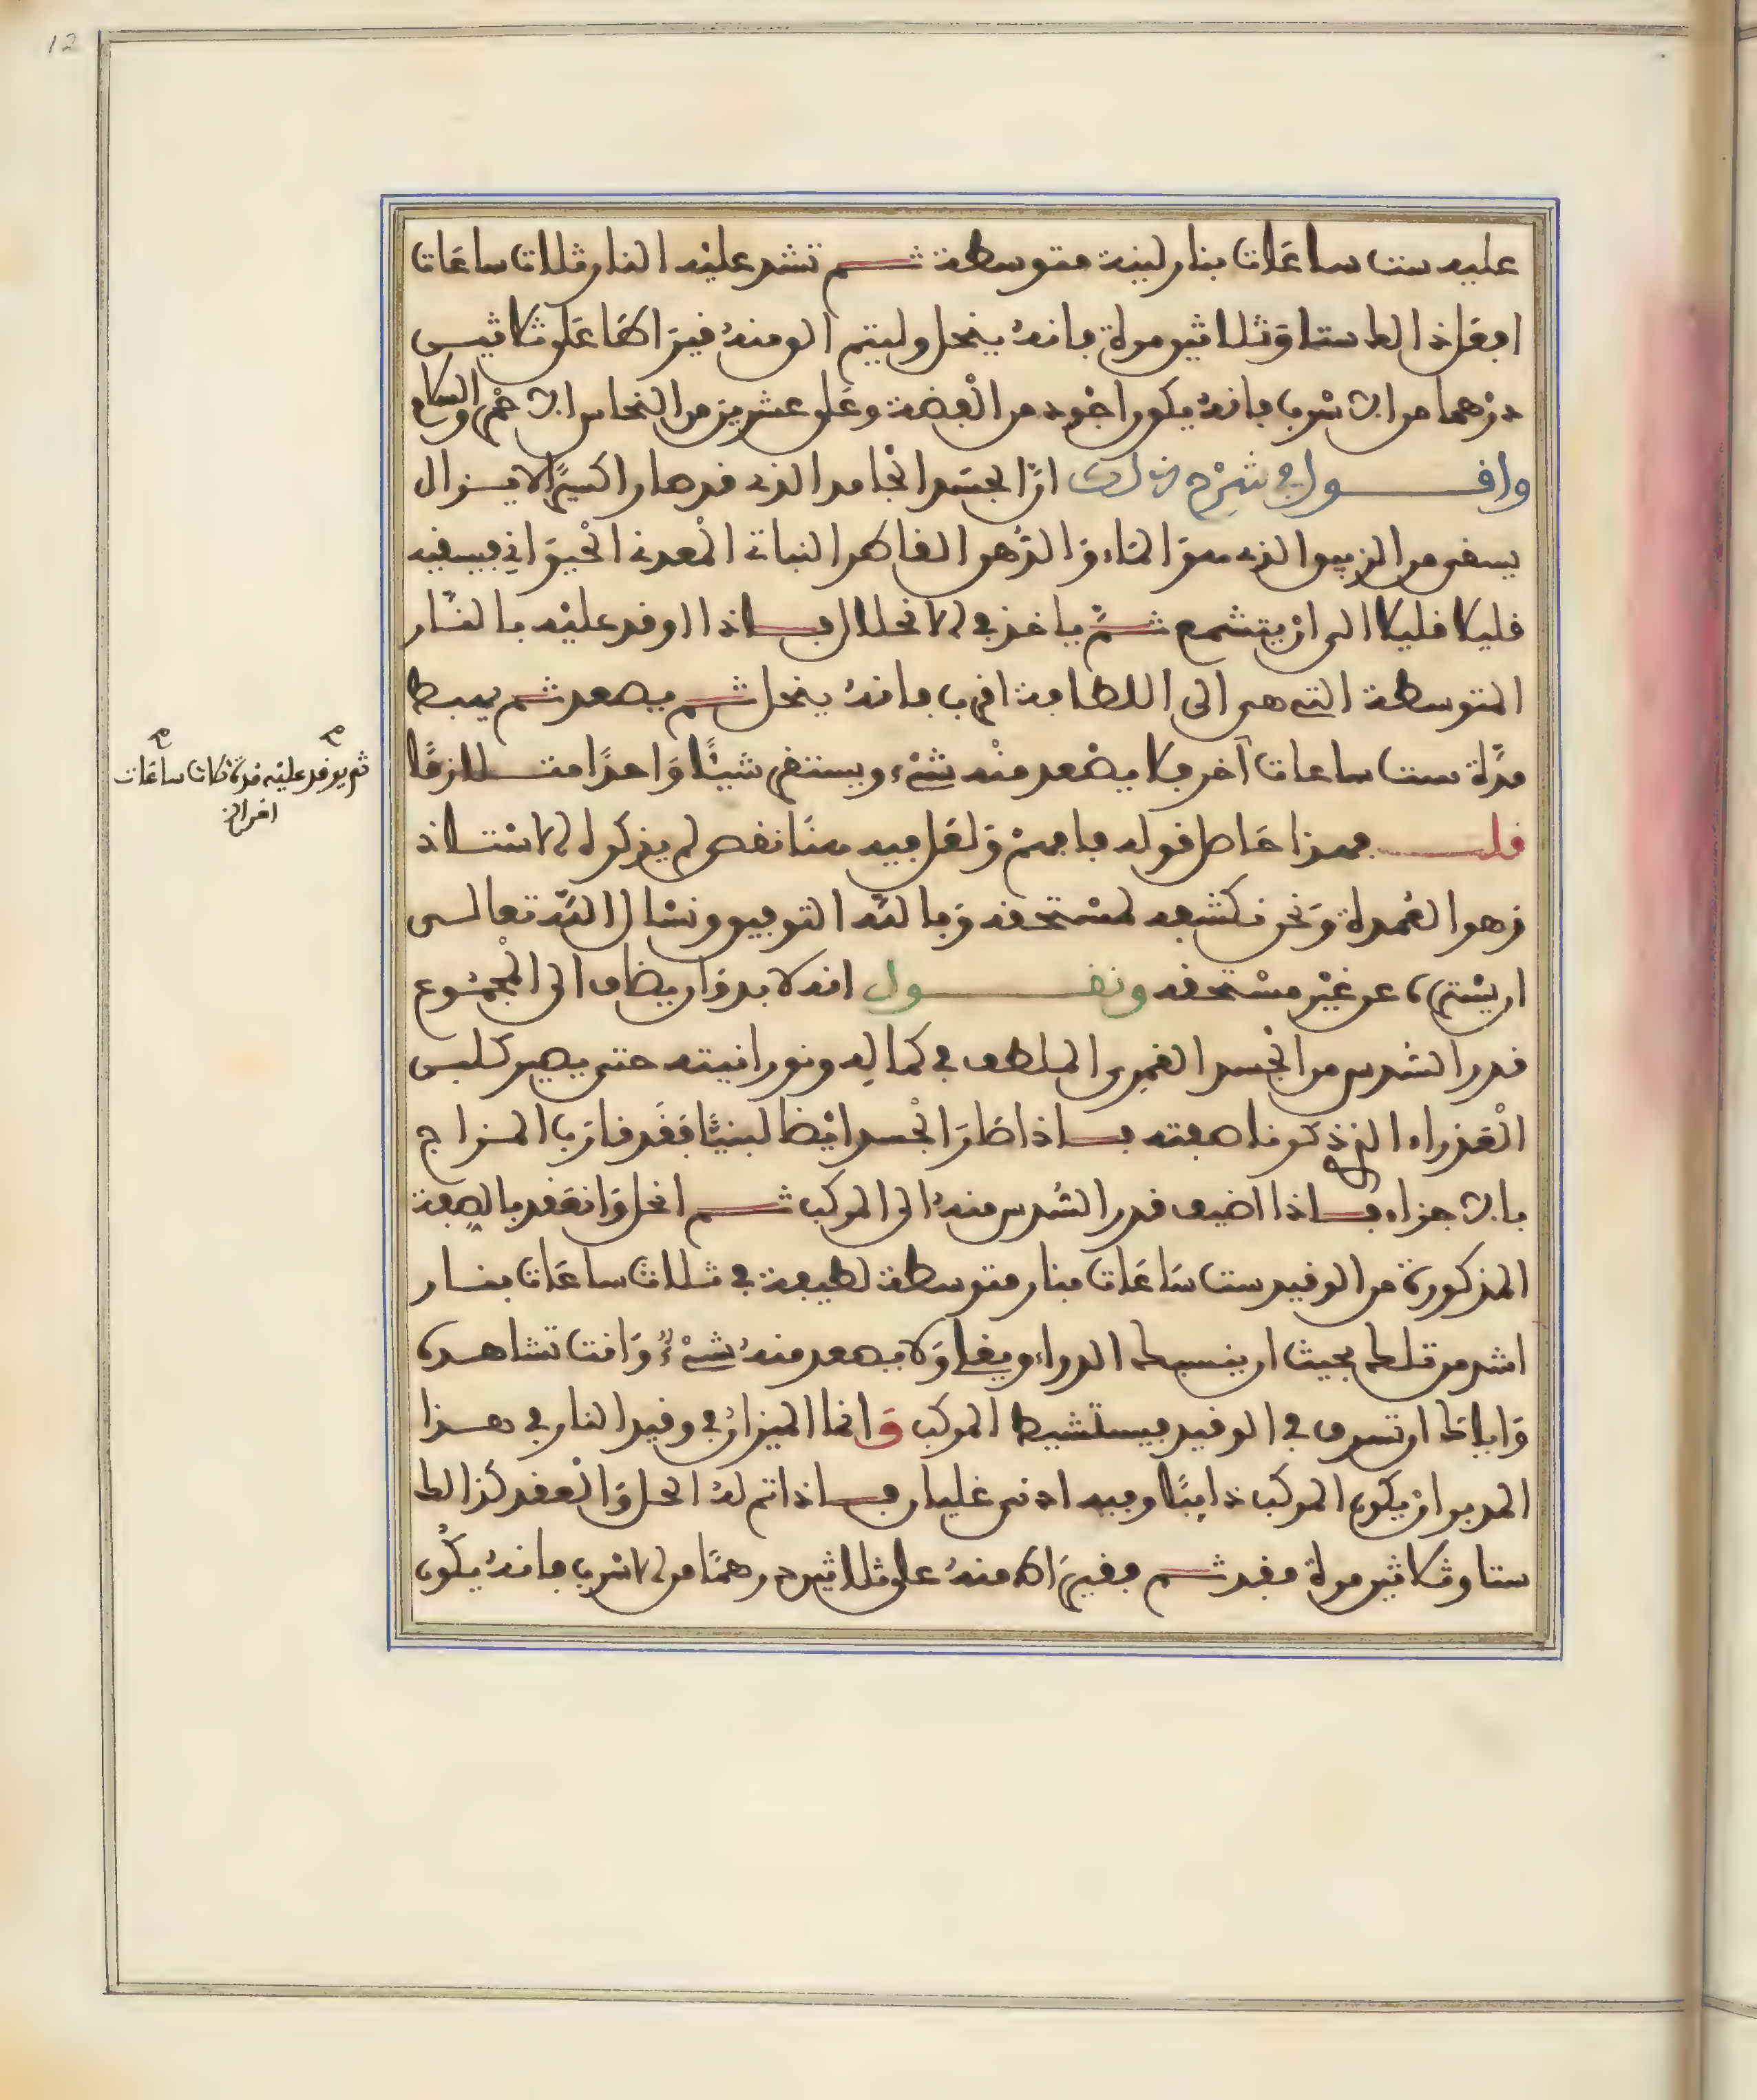 عليه ست ساعات بنار لينة متوسطة ثم تشد عليه النار ثلاث ساعات
افعل ذالك ستا وثلاثين مرة فانه ينحل وليتم الق منه قيراطا على ثلاثيـن
درهما من الاسرب فانه يكون اجود من الفضة وعلى عشرين من النحاس الاحمر والسلام
واقـــول في شرح ذلك ان الجسد الجامد الذي قد صار اكسيرا لا يـزال
يسقى من الزيبق الذي هو الماء والدهن القاطر النباتي المعدني الحيواني فيسقيه
قليلا قليلا الى ان يتشمع ثم ياخذ في الانحلال فـاذا اوقد عليه بالنـار
المتوسطة التي هي الى اللطافة اقرب فانه ينحل ثم يصعد ثم يهبط
مدة ست ساعات اخر فلا يصعد منه شيء ويستقر شيئا واحدا متـلازقا
قلـــت فهذا حاصل قوله فافهم ولعل فيه هنا نقص لم يذكره الاستـاذ
وهو العمدة ونحن نكشفه لمستحقه وبالله التوفيق ونسال الله تعالـى
ان يستره عن غير مستحقه ونقـــول انه لا بد وان يضاف الى المجمـوع
قدر السدس من الجسد القمري الملطف في كماله ونورانيته حتى يصير كلبـن
العذراء الذي ذكرنا صفته فـاذا صار الجسد ايضا لبنيا فقد قارب المـزاج
بالاجزاء فـاذا اضيف قدر السدس منه الى المركب ثـم انحل وانعقد بالصفة
المذكورة من الوقيد ست ساعات بنار متوسطة لطيفة في ثلاث ساعات بنـار
اشد من تلك بحيث ان ينسبك الدواء ويغلي ولا يصعد منه شيء وانت تشاهـده
واياك ان تسرف في الوقيد فيستشيط المركب وانما الميزان في وقيد النار في هـذا
المدبر ان يكون المركب ذايبا وفيه ادنى غليان فـاذا تم له الحل والعقد كذالك
ستا وثلاثين مرة فقد ثـم فقيراط منه على ثلاثين درهما من الاسرب فانه يكون
ثم يوقد عليه مدة ثلاث ساعات
اخر الخ
12